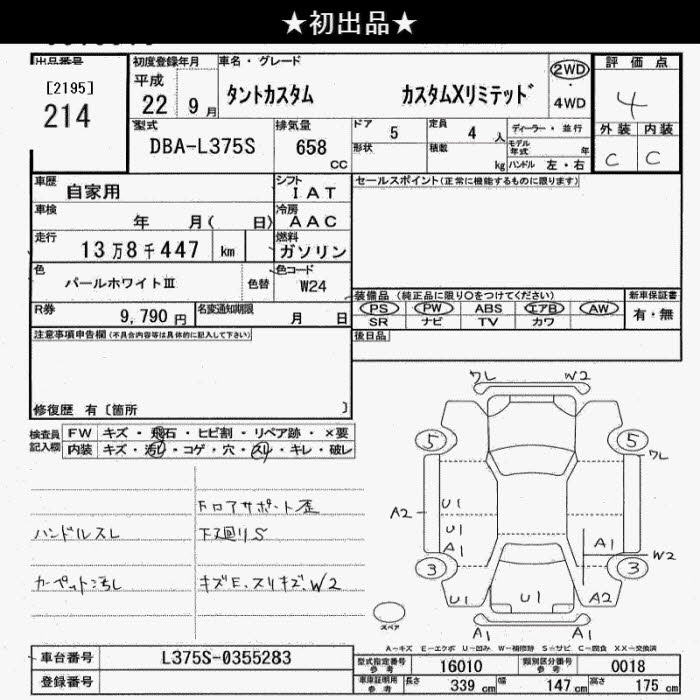 ★初出品★
出品番号
[2195]
214
初度登録年月
平成
22 9月
車名・グレード
タントカスタム カスタムXリミテッド
2WD
・
4WD
評価点
4
外装 内装
C C
型式
DBA-L375S
排気量
658
CC
ドア 5
定員 4 人
形状
積載 kg
ディーラー・並行
モデル年式 年
ハンドル 左・右
車歴
自家用
シフト
IAT
セールスポイント(正常に機能するものに限ります)
車検
年 月( 日)
冷房
AAC
走行
13万8千447 km
燃料
ガソリン
色
パールホワイトⅢ
色替
色コード
W24
R券
9,790円
名変通知期限
月 日
装備品 (純正品に限り○をつけてください)
新車保証書
PS PW ABS エアB AW
有・無
SR ナビ TV カワ
後日品
注意事項申告欄(不具合内容等は具体的に記入して下さい)
修復歴 有〔箇所 〕
検査員記入欄
FW キズ・飛石・ヒビ割・リペア跡・×要
内装 キズ・汚れ・コゲ・穴・スレ・キレ・破レ
Fロアサポート歪
ハンドルスレ
下廻りS
カーペット汚れ
キズE、スリキズ、W2
ワレ W2
5 5
ワレ
A2 U1
U1
A1 A1
W2
3 3
U1 U1 A2
スペア
A1 A1
A-キズ E-エクボ U-凹み W-補修跡 S-サビ C-腐食 XX-交換済
車台番号
L375S-0355283
登録番号
型式指定番号
参考
16010
類別区分番号
参考
0018
車庫証明用
参考
長さ 339 cm
幅 147 cm
高さ 175 cm